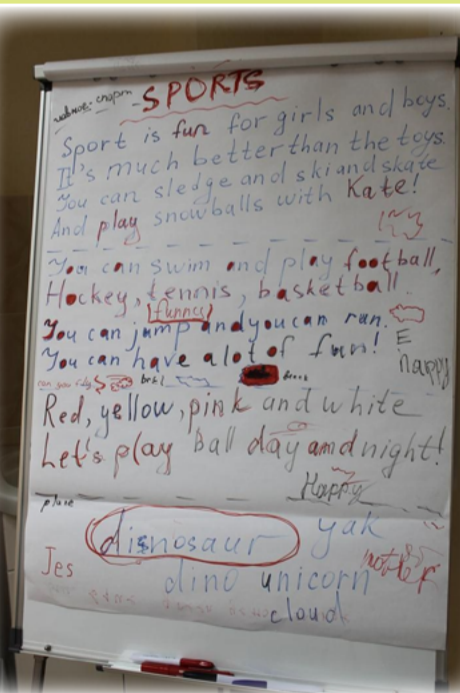 SPORTS
Sport is fun for girls and boys.
It's much better than the toys.
You can sledge and ski and skate
And play snowballs with Kate!
You can swim and play football,
Hockey, tennis, basketball.
funny
You can jump and you can run.
You can have a lot of fun!
E
happy
Red, yellow, pink and white
Let's play ball day and night!
Happy
disnosaur yak
Jes
dino unicorn
cloud